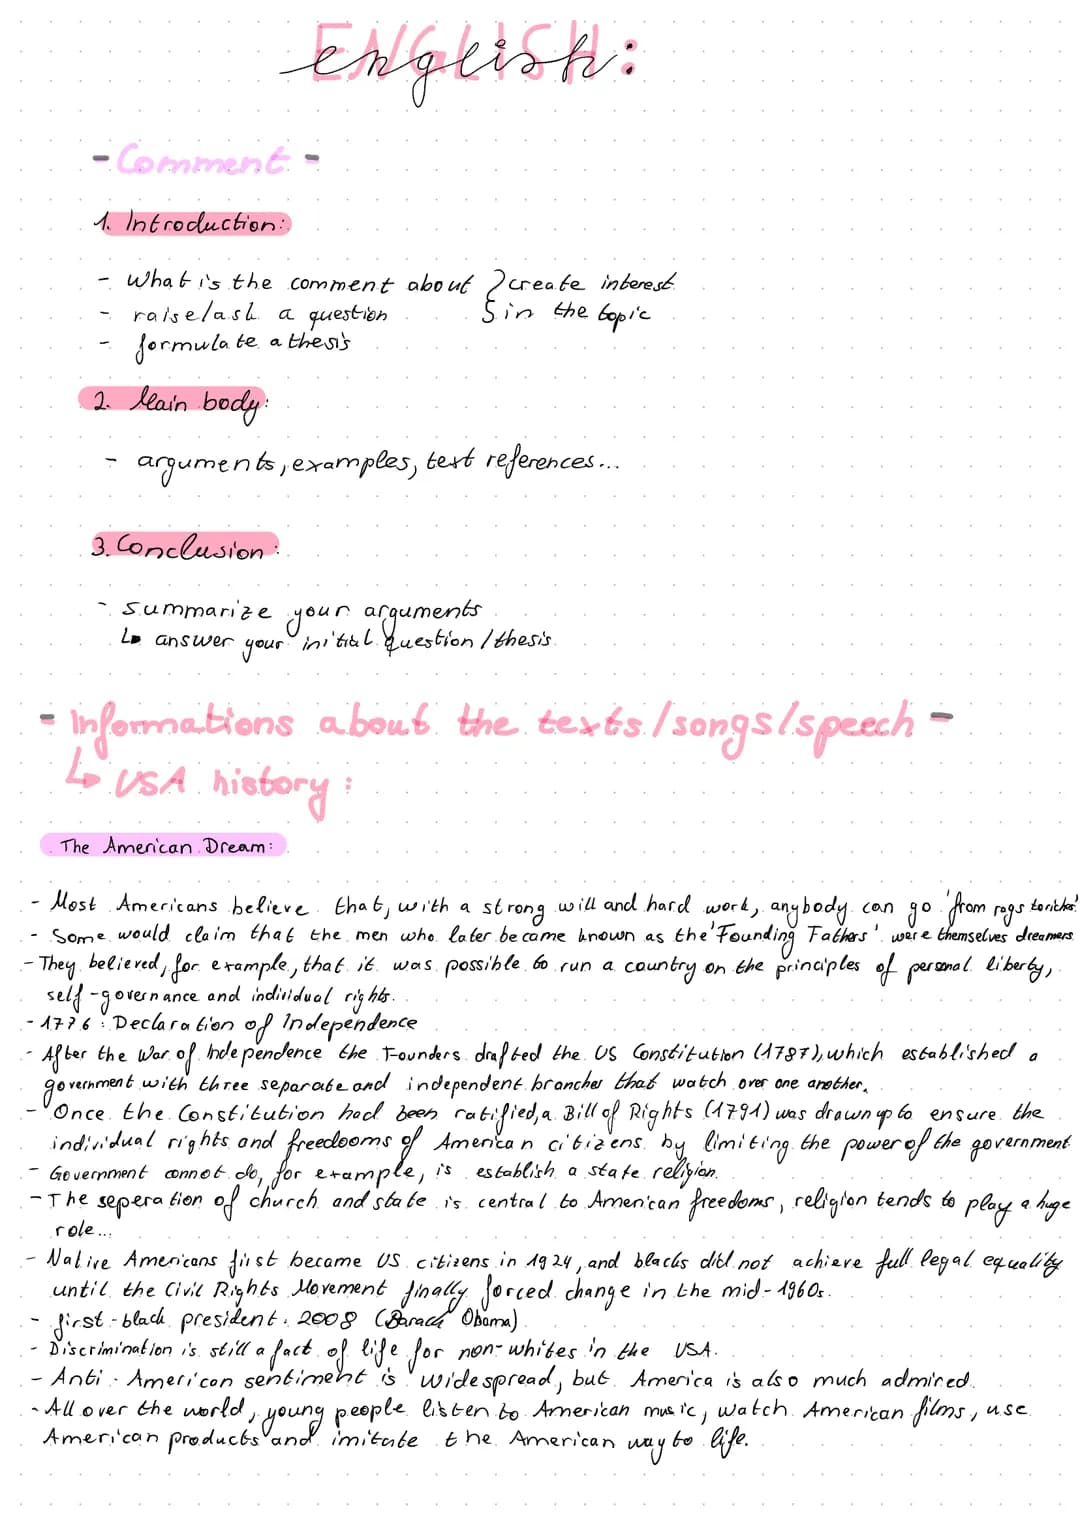 ENGLISH:
english:
- Comment -
1. Introduction:
- What is the comment about } create interest
- raise/ask a question } in the topic
- formulate a thesis
2. Main body:
- arguments, examples, text references...
3. Conclusion:
- summarize your arguments
↳ answer your initial question / thesis
- Informations about the texts/songs/speech -
↳ USA history:
The American Dream:
- Most Americans believe that, with a strong will and hard work, anybody can go 'from rags to riches'
- Some would claim that the men who later became known as the 'Founding Fathers' were themselves dreamers
- They believed, for example, that it was possible to run a country on the principles of personal liberty,
self-governance and individual rights.
- 1776: Declaration of Independence
- After the War of Independence the Founders drafted the US Constitution (1787), which established a
government with three separate and independent branches that watch over one another.
- Once the Constitution had been ratified, a Bill of Rights (1791) was drawn up to ensure the
individual rights and freedooms of American citizens by limiting the power of the government
- Government cannot do, for example, is establish a state religion.
- The seperation of church and state is central to American freedoms, religion tends to play a huge
role...
- Native Americans first became US citizens in 1924, and blacks did not achieve full legal equality
until the Civil Rights Movement finally forced change in the mid-1960s.
- first-black president: 2008 (Barack Obama)
- Discrimination is still a fact of life for non-whites in the USA.
- Anti-American sentiment is widespread, but America is also much admired.
- All over the world, young people listen to American music, watch American films, use
American products and imitate the American way to life.